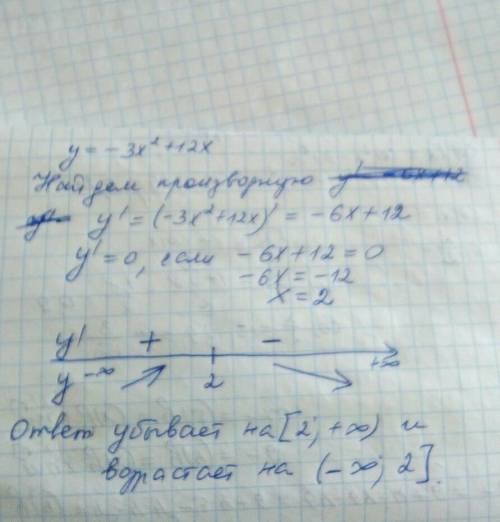 y = -3x² + 12x
Найдем производную
y' = (-3x² + 12x)' = -6x + 12
y' = 0, если -6x + 12 = 0
-6x = -12
x = 2
y' + -
y -∞ 2 +∞
Ответ убывает на [2; +∞) и
возрастает на (-∞; 2].